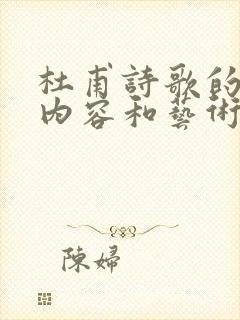 杜甫詩歌的
內容和藝術
陳婦